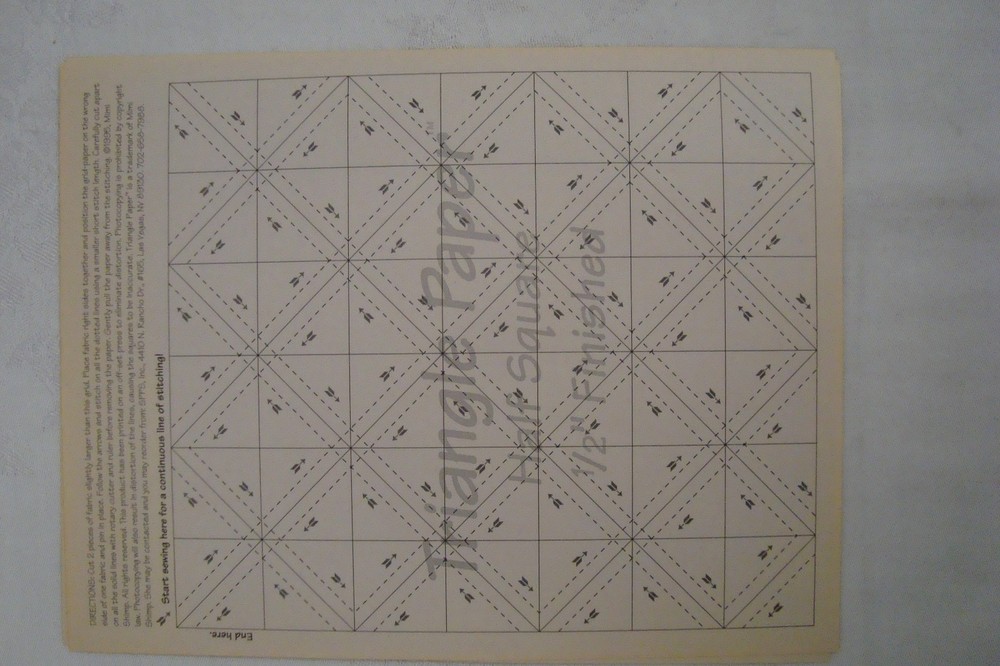 DIRECTIONS: Cut 2 pieces of fabric slightly larger than this grid. Place fabric right sides together and position the grid-paper on the wrong
side of one fabric and pin in place. Follow the arrows and stitch on all the dotted lines using a smaller short stitch length. Carefully cut apart
on all the solid lines with rotary cutter and ruler before removing the paper. Gently pull the paper away from the stitching. ©1996, Mimi
Shimp. All rights reserved. This product has been printed on an off-set press to eliminate distortion. Photocopying is prohibited by copyright
law. Photocopying will also result in distortion of the lines, causing the squares to be inaccurate. Triangle Paper™ is a trademark of Mimi
Shimp. She may be contacted and you may reorder from: SPPS, Inc., 4410 N. Rancho Dr., #165, Las Vegas, NV 89130 702-658-7988.
Start sewing here for a continuous line of stitching!
End here.
Triangle Paper™
Half Square
1/2" Finished